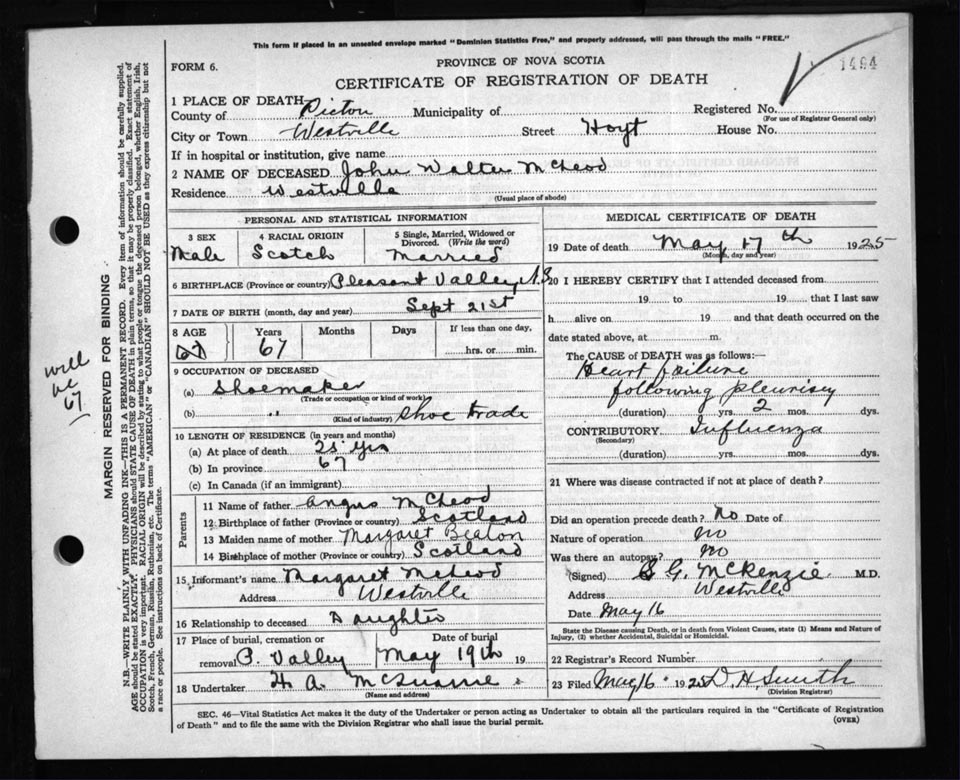 This form if placed in an unsealed envelope marked "Dominion Statistics Free," and properly addressed, will pass through the mails "FREE."
FORM 6.
PROVINCE OF NOVA SCOTIA
1494
CERTIFICATE OF REGISTRATION OF DEATH
1 PLACE OF DEATH
County of Pictou Municipality of Registered No.
(For use of Registrar General only)
City or Town Westville Street Hoyt House No.
If in hospital or institution, give name
2 NAME OF DECEASED John Walter McLeod
Residence Westville
(Usual place of abode)
PERSONAL AND STATISTICAL INFORMATION
3 SEX 4 RACIAL ORIGIN 5 Single, Married, Widowed or Divorced. (Write the word)
Male Scotch Married
6 BIRTHPLACE (Province or country) Pleasant Valley N.S
7 DATE OF BIRTH (month, day and year) Sept 21st
8 AGE Years Months Days If less than one day,
67 67 hrs. or min.
9 OCCUPATION OF DECEASED
(a) Shoemaker
(Trade or occupation or kind of work)
(b) " Shoe trade
(Kind of industry)
10 LENGTH OF RESIDENCE (in years and months)
(a) At place of death 25 yrs
(b) In province 67
(c) In Canada (if an immigrant)
Parents
11 Name of father Angus McLeod
12 Birthplace of father (Province or country) Scotland
13 Maiden name of mother Margaret Beaton
14 Birthplace of mother (Province or country) Scotland
15 Informant's name Margaret McLeod
Address Westville
16 Relationship to deceased Daughter
17 Place of burial, cremation or Date of burial
removal P. Valley May 19th 19
18 Undertaker H A McQuarrie
(Name and address)
MEDICAL CERTIFICATE OF DEATH
19 Date of death May 17th 1925
(Month, day and year)
20 I HEREBY CERTIFY that I attended deceased from
19 to 19 that I last saw
h alive on 19 and that death occurred on
date stated above, at m.
The CAUSE OF DEATH was as follows:
Heart failure
following pleurisey
(duration) yrs. 2 mos. dys.
CONTRIBUTORY Influenza
(Secondary)
(duration) yrs. mos. dys.
21 Where was disease contracted if not at place of death?
Did an operation precede death? No Date of
Nature of operation no
Was there an autopsy? no
(Signed) S G. McKenzie M.D.
Address Westville
Date May 16
State the Disease causing Death, or in death from Violent Causes, state (1) Means and Nature of
Injury, (2) whether Accidental, Suicidal or Homicidal.
22 Registrar's Record Number
23 Filed May 16 1925 D. H. Smith
(Division Registrar)
SEC. 46—Vital Statistics Act makes it the duty of the Undertaker or person acting as Undertaker to obtain all the particulars required in the "Certificate of Registration
of Death" and to file the same with the Division Registrar who shall issue the burial permit.
(OVER)
will
be
67
MARGIN RESERVED FOR BINDING
N.B.—WRITE PLAINLY WITH UNFADING INK—THIS IS A PERMANENT RECORD. Every item of information should be carefully supplied.
AGE should be stated EXACTLY. PHYSICIANS should STATE CAUSE OF DEATH in plain terms, so that it may be properly classified. Exact statement of
OCCUPATION is very important. RACIAL ORIGIN will be described by stating to what people or tongue the deceased person belonged, whether English, Irish,
Scotch, French, German, Russian, Ruthenian, etc. The terms "AMERICAN" or "CANADIAN" SHOULD NOT BE USED as they express citizenship but not
a race or people. See instructions on back of Certificate.